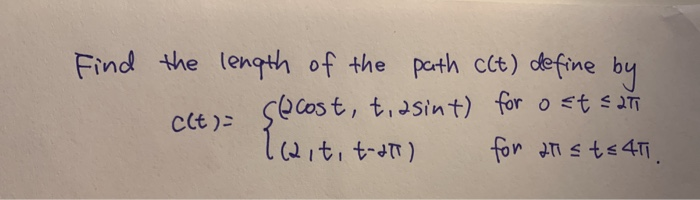 Find the length of the path c(t) define by
c(t) = { (2cost, t, 2sint) for 0 ≤ t ≤ 2π
(2, t, t-2π) for 2π ≤ t ≤ 4π.